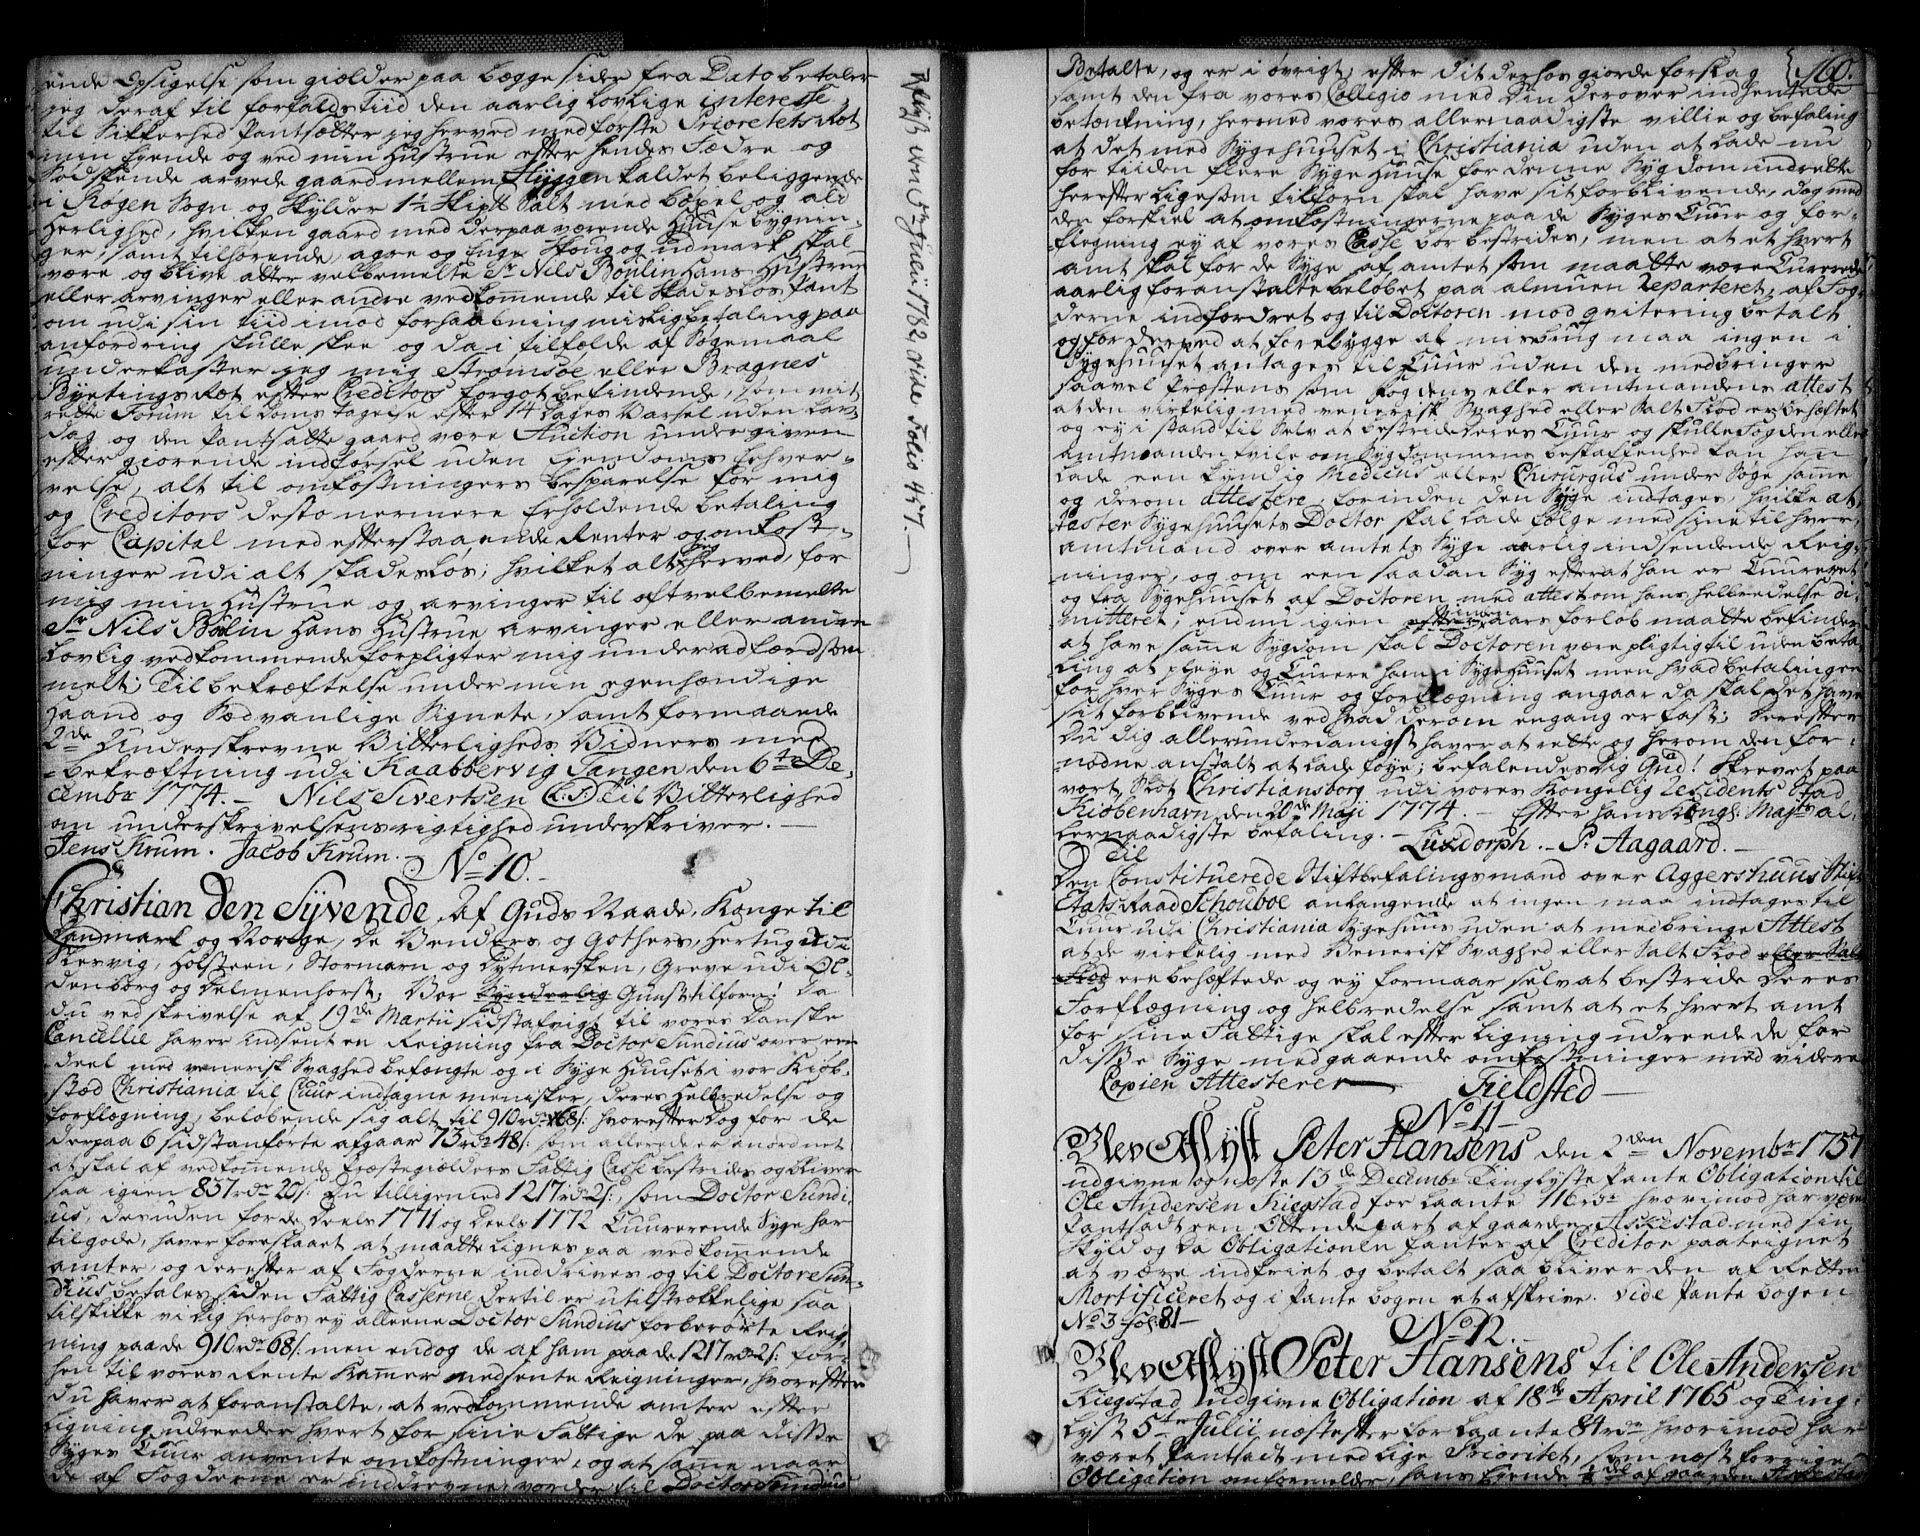 ende Opsigelse som gielder paa begge sider fra Dato betaler
jeg deraf til forfalds Tiid den aarlig lovlige interesse
til Sikkerhed Pantsætter jeg herved med første Prioretets Ræt
min Eyende og ved min Hustrue efter hendes Fædre og
Sødskende arvede gaard mellem Hyggen kaldet beliggende
i Røgen Sogn og skylder 1½ Skipd Salt med bøxel og ald
Herlighed, hvilken gaard med derpaa værende Huuse bygnin-
ger, samt tilhørende, agre og Enge Skoug og udmark skal
være og blive atter velbemelte Sr Nils Bølin Hans Hustrue
eller arvinger eller andre vedkommende til Skadesløs Pant
om udi sin tiid imod forhaabning mislig betaling paa
anfordring skulle skee og da i tilfælde af Søgemaal
underkaster jeg mig Strømsøe eller Bragnes
Byetings Ræt efter Creditors forgotbefindende, som mit
rette Forum til Doms tagelse efter 14 Dages Varsel uden Lav-
dag og den Pantsatte gaard være Auction undergiven
efter giørende indførsel uden Eyendoms Erhver-
velse, alt til omkostningers besparelse for mig
og Creditors desto nermere Erholdende betaling
for Capital med efterstaaende Renter og omkost-
ninger udi alt skadesløs; hvilket alt jeg herved for
mig min Hustrue og arvinger til oftvelbemelte
Sr Nils Bølin Hans Hustrue arvinger eller andre
Lovlig vedkommende forpligter mig underadfærd som
melt; Til bekræftelse under min egenhændige
Haand og Sædvanlige Signete, samt formaaende
2de Underskrevne Vitterligheds Vidners med
bekræftning udi Kaabbervig Tangen den 6te De-
cembr 1774. - Nils Sivertsen (L.S.) Til Vitterlighed
om underskrivelsens rigtighed underskriver. -
Jens Krum. Jacob Krum.
No 10.
Christian den Syvende, af Guds Naade, Konge til
Danmark og Norege, De Venders og Gothers, Hertug udi
Slesvig, Holsteen, Stormarn og Dytmersken, Greve udi Ol-
denborg og Delmenhorst; Vor synderlig Gunst tilforn! Da
du ved skrivelse af 19de Martii sidstafvigt til vores Danske
Cancellie haver indsent en Reigning fra Doctor Sundius over een
deel med venerisk Svaghed befængte og i Syge Huuset i vor Kiøb-
stæd Christiania til Cuur indtagne menisker, deres Helbredelse og
forflegning, beløbende sig alt til 910 rdr 68 s: hvorefter Dog for de
derpaa 6 sidstanførte afgaar 73 rdr 48 s: som allerede er anordnet
at skal af vedkommende Præstegiælders Fattig Casse bestrides og bliver
saa igien 837 rdr 20 s: Du tilligemed 1217 rdr 2 s:, som Doctor Sundi-
us, desuden for de Deels 1771 og Deels 1772 Cuurerende Syge har
tilgode, haver foreslaaet at maatte Lignes paa vedkommende
amter og derefter af Fogderne inddrives og til Doctor Sun-
dius betales, siden Fattig Casserne dertil er utilstrekkelige saa
tilskikke vi Dig herhos ey alleene Doctor Sundius forberørte Reig-
ning paa de 910 rdr 68 s: men endog de af ham paa de 1217 rdr 2 s: for-
hen til vores Rente Kammer medsente Reigninger, hvorefter
du haver at foranstalte, at vedkommende amter efter
Ligning udreeder hvert for sine Fattige de paa disse
Syges Cuur anvente omkostninger, og at samme naar
de af Fogderne er inddrevne vorder til Doctor Sundius
Aflyst den 5te Junii 1782, vide Folio 457.
160.
Betalte, og er i øvrigt, efter dit derhos giorde forslag
samt den fra vores Collegio med Din derover indhentede
betænkning, hermed vores allernaadigste villie og befaling
at det med Sygehuuset i Christiania uden at Lade nu
for tiiden flere Syge Huuse for denne Sygdom indrette
herefter ligesom tilforn skal have sit forblivende, dog med
den forskiel at omkostningerne paa de Syges Cuur og for-
flegning ey af vores Casse bør bestrides, men at et hvert
amt skal for de Syge af amtet som maatte være Cuurerede
aarlig foranstalte beløbet paa almuen Reparteret, af Fog-
derne indfordret og til Doctoren mod qvitering betalt
og for derved at forebygge at misbrug maa ingen i
Sygehuuset antages til Cuur uden den medbringer
saavel Præstens som Fogdens eller amtmandens attest
at den virkelig med venerisk Svaghed eller Salt Flod er behæftet
og ey i stand til Selv at bestride deres Cuur og skulle Fogden eller
amtmanden tvile om Sygdommens beskaffenhed kan han
Lade een kyndig Medicus eller Chirurgus undersøge samme
og derom attestere, forinden den Syge indtages, hvilke at-
tester Sygehuusets Doctor skal Lade følge med sine til hver
amtmand over amtets Syge aarlig indsendende Reig-
ninger, og om een saadan Syg efterat han er Cuureret
og fra Sygehuuset af Doctoren med attest om hans helbredelse di-
mitteret, endnu igien inden aars forløb maatte befindes
at have samme Sygdom skal Doctoren være pligtig til uden beta-
ling at pleye og Curere ham i Sygehuuset men hvad betalingen
for hver Syges Cuur og forflægning angaar da skal det have
sit forblivende ved hvad derom engang er fast; Derefter
Du dig allerunderdanigst haver at rette og herom den for-
nødne anstalt at lade føye; befalendes Dig Gud! Skrevet paa
vort Slot Christiansborg udi vores Kongelig Residents Stad
Kiøbenhavn den 20de Maji 1774. - Efter hans Kongl: Majts al-
lernaadigste befaling. - Luxdorph. - P. Aagaard. -
Til
Den Constituerede Stiftbefalingsmand over Aggershuus Stift
Etats Raad Schouboe anlangende at ingen maa indtages til
Cuur udi Christiania Sygehuus uden at medbringe Attest
at de virkelig med Venerisk Svaghed eller Salt Flod eller Salt
Flod ere behæftede og ey formaar selv at bestride Deres
Forflægning og helbredelse samt at et hvert amt
for sine Fattige skal efter Ligning udreede de for
disse Syge medgaaende omkostninger med videre
Copien Attesterer Fieldsted
No 11
Blev Aflyst Peter Hansens den 2den Novembr 1757
udgivne og næste 13de Decembr Tinglyste Pante Obligation til
Ole Andersen Kiegstad for laante 116 rdr hvorimod har været
Pantsadt een Ottende part af gaarden Askestad med sin
Skyld og da Obligationen fantes af Creditor paateignet
at være indfriet og betalt saa bliver den af Retten
Mortificeret og i Pante bogen at afskrive. vide Pante bogen
No 3 fol: 81 -
No 12.
Blev Aflyst Peter Hansens til Ole Andersen
Kiegstad udgivne Obligation af 18de April 1765 og Ting-
lyst 5te Julii næstefter for laante 84 rdr hvorimod har
været Pantsadt med lige Prioritet, som næst forrige
Obligation ommelder, hans Eyende ⅛de af gaarden Askestad